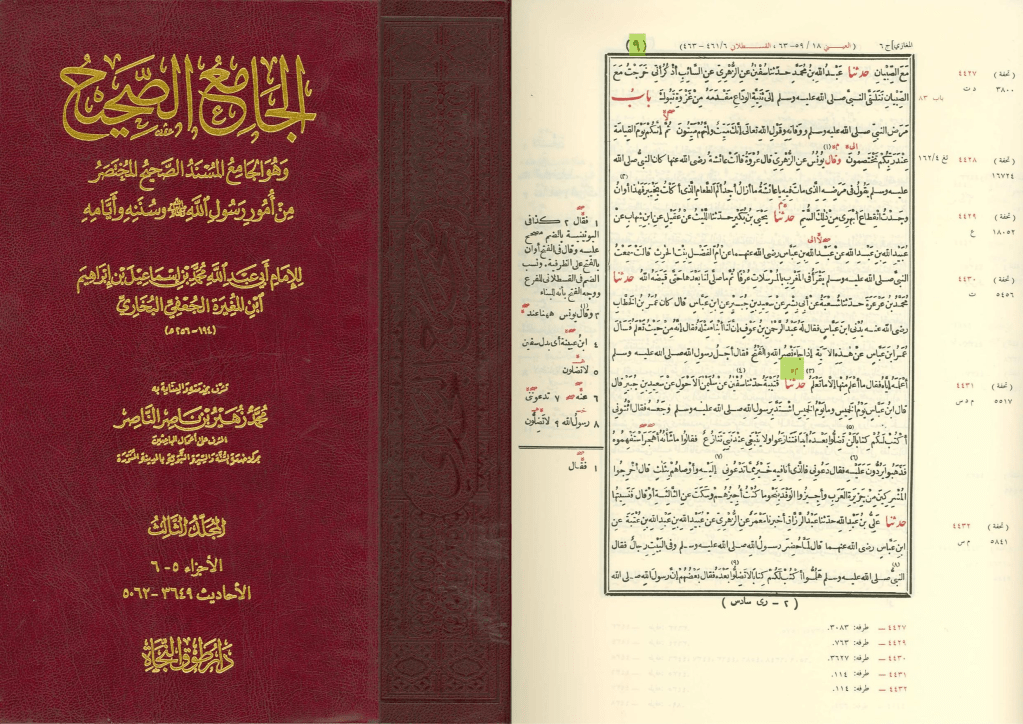 الجامع الصحيح
وهو الجامع المسند الصحيح المختصر
من أمور رسول الله ﷺ وسننه وأيامه
للإمام أبي عبد الله محمد بن إسماعيل بن إبراهيم
ابن المغيرة الجعفي البخاري
(١٩٤-٢٥٦ هـ)
تشرف بخدمته والعناية به
محمد زهير بن ناصر الناصر
المشرف على أعمال الباحثين
بمركز خدمة السنة والسيرة النبوية بالمدينة المنورة
المجلد الثالث
الأجزاء ٥-٦
الأحاديث ٣٦٤٩-٥٠٦٢
دار طوق النجاة
المغازي] ج ٦ (العيني ١٨ / ٥٩-٦٣، القسطلاني ٦/ ٤٦١-٤٦٣) (٩)
مع الصبيان حدثنا عبد الله بن محمد حدثنا سفين عن الزهري عن السائب أذكر أني خرجت مع
الصبيان نتلقى النبي صلى الله عليه وسلم إلى ثنية الوداع مقدمه من غزوة تبوك باب
مرض النبي صلى الله عليه وسلم ووفاته وقول الله تعالى إنك ميت وإنهم ميتون ثم إنكم يوم القيامة
عند ربكم تختصمون وقال يونس عن الزهري قال عروة قالت عائشة رضى الله عنها كان النبي صلى الله
عليه وسلم يقول في مرضه الذي مات فيه يا عائشة ما أزال أجد ألم الطعام الذي أكلت بخيبر فهذا أوان
وجدت انقطاع أبهري من ذلك السم حدثنا يحيى بن بكير حدثنا الليث عن عقيل عن ابن شهاب عن
عبيد الله بن عبد الله عن عبد الله بن عباس رضى الله عنهما عن أم الفضل بنت الحرث قالت سمعت
النبي صلى الله عليه وسلم يقرأ في المغرب بالمرسلات عرفا ثم ما صلى لنا بعدها حتى قبضه الله حدثنا
محمد بن عرعرة حدثنا شعبة عن أبي بشر عن سعيد بن جبير عن ابن عباس قال كان عمر بن الخطاب
رضى الله عنه يدني ابن عباس فقال له عبد الرحمن بن عوف إن لنا أبناء مثله فقال إنه من حيث تعلم فسأل
عمر ابن عباس عن هذه الآية إذا جاء نصر الله والفتح فقال أجل رسول الله صلى الله عليه وسلم
أعلمه إياه فقال ما أعلم منها إلا ما تعلم حدثنا قتيبة حدثنا سفين عن سليمن الأحول عن سعيد بن جبير قال
قال ابن عباس يوم الخميس وما يوم الخميس اشتد برسول الله صلى الله عليه وسلم وجعه فقال ائتوني
أكتب لكم كتابا لن تضلوا بعده أبدا فتنازعوا ولا ينبغي عند نبي تنازع فقالوا ما شأنه أهجر استفهموه
فذهبوا يردون عليه فقال دعوني فالذي أنا فيه خير مما تدعوني إليه وأوصاهم بثلث قال أخرجوا
المشركين من جزيرة العرب وأجيزوا الوفد بنحو ما كنت أجيزهم وسكت عن الثالثة أو قال فنسيتها
حدثنا علي بن عبد الله حدثنا عبد الرزاق أخبرنا معمر عن الزهري عن عبيد الله بن عبد الله بن عتبة عن
ابن عباس رضى الله عنهما قال لما حضر رسول الله صلى الله عليه وسلم وفي البيت رجال فقال
النبي صلى الله عليه وسلم هلموا أكتب لكم كتابا لا تضلوا بعده فقال بعضهم إن رسول الله صلى الله
(٢ - ري سادس)
٤٤٢٧ (تحفة)
٣٨٠٠ د ت
باب ٨٣
٤٤٢٨ (تحفة)
١٦٧٢٤
تغ ١٦٢/٤
٤٤٢٩ (تحفة)
١٨٠٥٢ ع
٤٤٣٠ (تحفة)
٥٤٥٦ ت
٤٤٣١ (تحفة)
٥٥١٧ م د س
٤٤٣٢ (تحفة)
٥٨٤١ م س
١ فقال ٢ كذا في
اليونينية بالضم مصحح
عليه وقال في الفتح أوان
بالفتح على الظرفية ونسب
الضم في القسطلاني للفرع
ووجه الفتح بأنه للبناء
٣ وقال يونس ههنا عند
٤ ابن عيينة أي بدل سفين
٥ لا تضلون
٦ عنه ٧ تدعونني
٨ رسول الله ٩ لا تضلون
١ فقال
٤٤٢٧ - طرفه: ٣٠٨٣.
٤٤٢٩ - طرفه: ٧٦٣.
٤٤٣٠ - طرفه: ٣٦٢٧.
٤٤٣١ - طرفه: ١١٤.
٤٤٣٢ - طرفه: ١١٤.